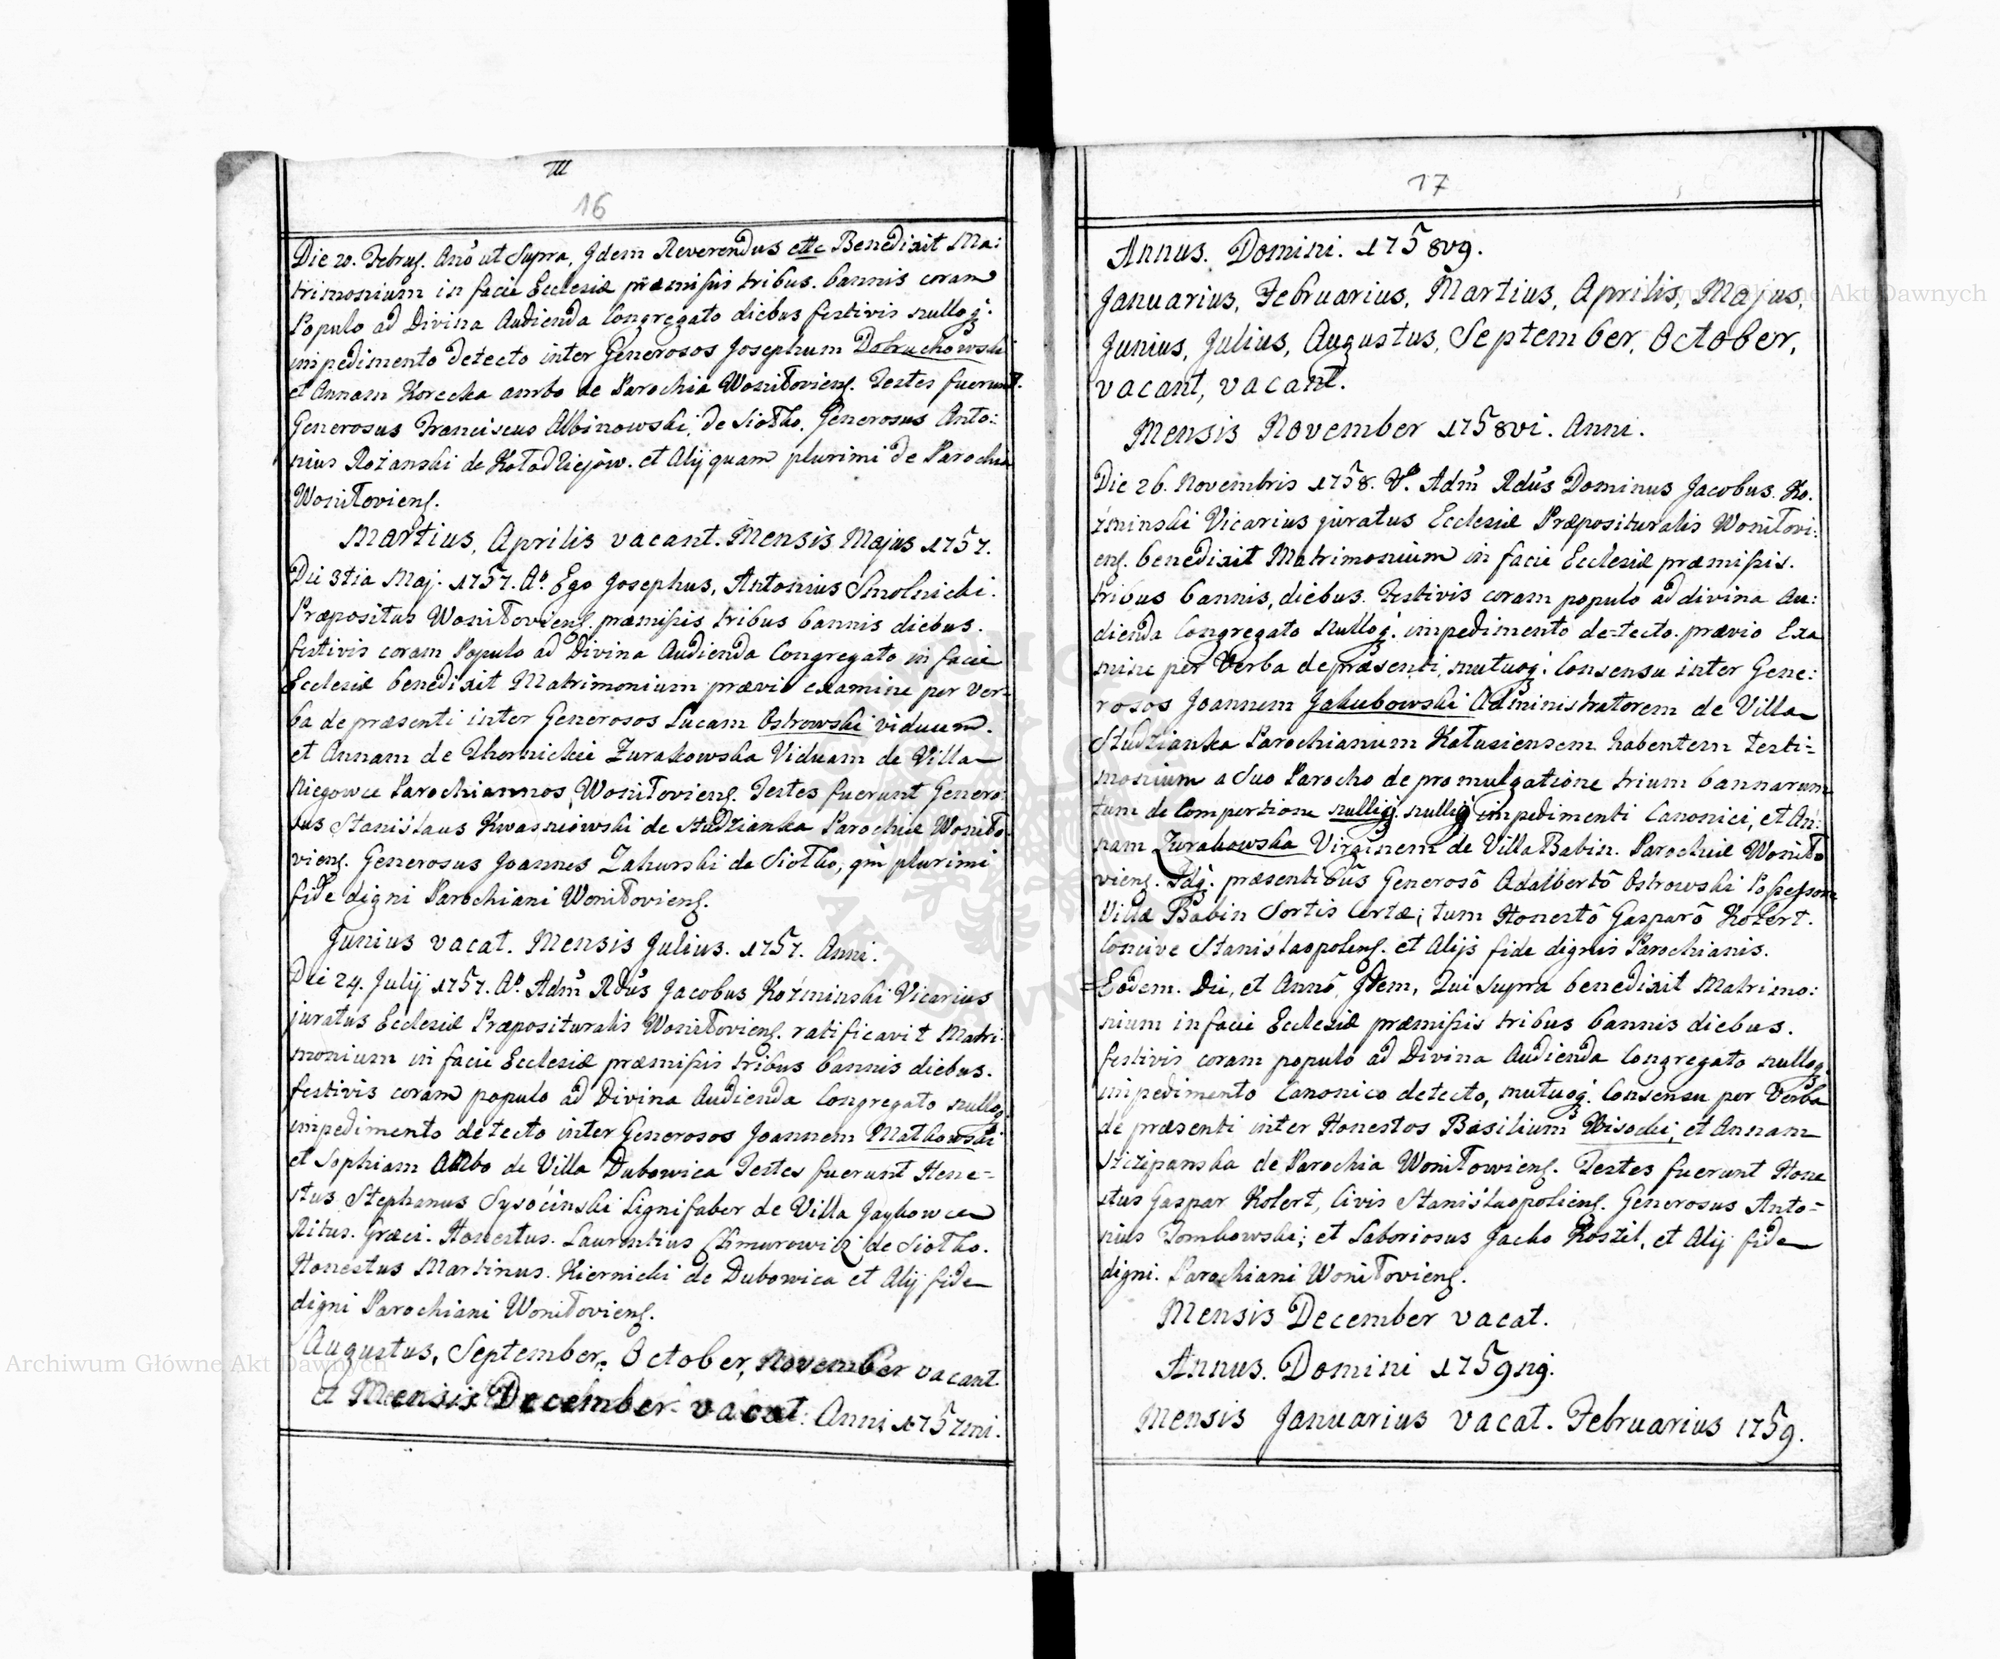 III
16
Die 20. Febru͠. Anō ut Supra, Idem Reverendus ettc Benedixit Ma:
trimonium in facie Ecclesiæ præmissis tribus. bannis coram
Populo ad Divina Audienda Congregato diebus festivis nulloq;
impedimento detecto inter Generosos Josephum Dobruchowski
et Annam Korecka ambo de Parochia Woniłoviens. Testes fuerunt.
Generosus Franciscus Albinowski, de Siołko. Generosus Anto:
nius Rożanski de Kołodziejow. et Alij quam plurimi de Parochia
Woniłoviens.
Martius, Aprilis vacant. Mensis Majus 1757.
Die 3tia Maj. 1757. Aº. Ego Josephus, Antonius Smolnicki.
Præpositus Woniłoviens. præmissis tribus bannis diebus.
festivis coram Populo ad Divina Audienda Congregato in facie
Ecclesiæ benedixit Matrimonium prævio examine per ver=
ba de præsenti inter Generosos Lucam Ostrowski viduum.
et Annam de Thornickie Zurakowska Viduam de Villa
Niegowce Parochiannos Woniłoviens. Testes fuerunt Genero:
sus Stanislaus Kwasniowski de Studzianka Parochiæ Woniło
viens. Generosus Joannes Zahurski de Siołko, qm plurimi
fide digni Parochiani Woniłoviens.
Junius vacat. Mensis Julius. 1757. Anni.
Die 24. Julij 1757. Aº. Adm̄ Rdus Jacobus Koźminski Vicarius
juratus Ecclesiæ Præposituralis Woniłoviens. ratificavit Matri:
monium in facie Ecclesiæ præmissis tribus bannis diebus.
festivis coram populo ad Divina Audienda Congregato nulloq;
impedimento detecto inter Generosos Joannem Matkowski
et Sophiam Ambo de Villa Dubowica Testes fuerunt Hone=
stus Stephanus Sysocinski Lignifaber de Villa Jaykowce
Ritus. Græci. Honestus. Laurentius Chmurowicz de Siołko.
Honestus Martinus. Kiernicki de Dubowica et Alij fide
digni Parochiani Woniłoviens.
Augustus, September, October, November vacant
et Mensis December vacat: Anni 1757mi.
17
Annus. Domini. 1758vg.
Januarius, Februarius, Martius, Aprilis, Majus,
Junius, Julius, Augustus, September, October,
vacant, vacant.
Mensis November 1758vi. Anni.
Die 26. Novembris 1758. V. Adm̄ Rdus Dominus Jacobus Ko.
źminski Vicarius juratus Ecclesiæ Præposituralis Woniłovi:
ens. benedixit Matrimonium in facie Ecclesiæ præmissis.
tribus bannis, diebus. Festivis coram populo ad divina Au:
dienda Congregato nulloq; impedimento de=tecto. prævio Exa
mine per Verba de præsenti, mutuoq; Consensu inter Gene:
rosos Joannem Jakubowski Administratorem de Villa
Studzianka Parochianum Kałusiensem habentem Testi=
monium a Suo Parocho de promulgatione trium bannorum
tum de Compertione nulliq; nulliq; impedimenti Canonici, et An:
nam Zurakowska Virginem de Villa Babin. Parochiæ Woniło
viens. Idq; præsentibus Generosō Adalbertō Ostrowski Possessore
Villæ Babin Sortis Certæ; tum Honestō Gasparō Kolert.
Concive Stanislaopoliens. et Alijs fide dignis Parochianis.
Eodem. Die, et Annō, Idem, Qui Supra benedixit Matrimo:
nium in facie Ecclesiæ præmissis tribus bannis diebus.
festivis coram populo ad Divina Audienda Congregato nulloq;
impedimento Canonico detecto, mutuoq; Consensu per Verba
de præsenti inter Honestos Basilium Wisocki, et Annam
Sczepanska de Parochia Woniłowiens. Testes fuerunt Hone
stus Gaspar Kolert, Civis Stanislaopoliens. Generosus Anto=
nius Dombowski; et Laboriosus Jacko Koszil, et Alij fide
digni. Parochiani Woniłoviens.
Mensis December vacat.
Annus. Domini 1759nq.
Mensis Januarius vacat. Februarius 1759.
Archiwum Główne Akt Dawnych
Archiwum Główne Akt Dawnych